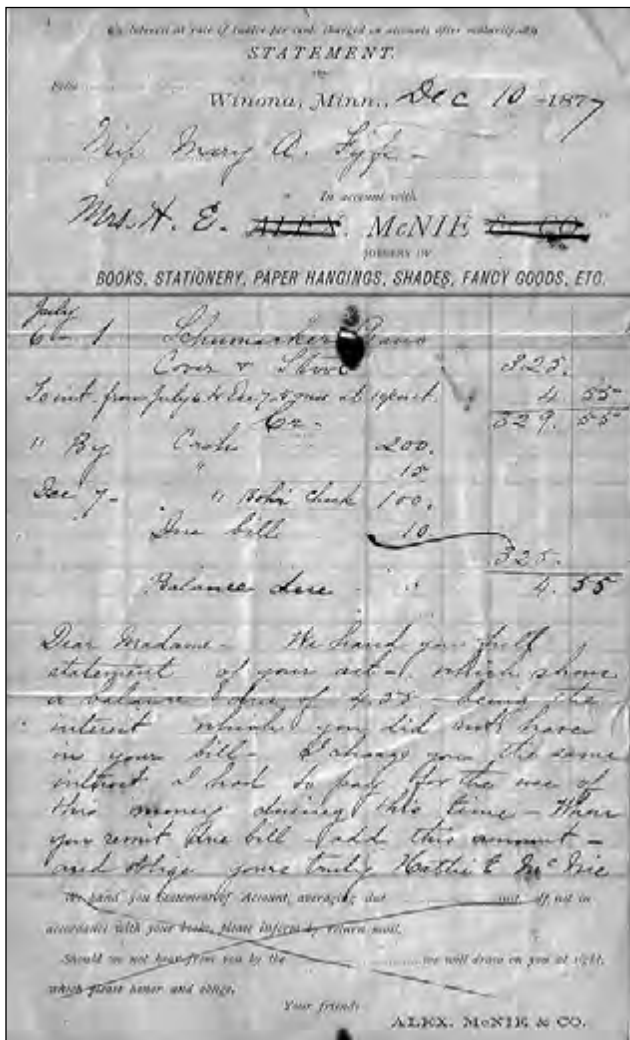 Interest at rate of twelve per cent. charged on accounts after maturity.
STATEMENT.
Folio
Winona, Minn., Dec 10 1877
Miss Mary A. Fyfe
In account with
Mrs. H. E. ALEX. McNIE & CO.
JOBBERS IN
BOOKS, STATIONERY, PAPER HANGINGS, SHADES, FANCY GOODS, ETC.
July
6 1 Schumacker Piano
Cover & Stool 325.
To int. from July 6 to Dec 7 5 mos at 4 55
Cr. 329. 55
" By Cash 200.
" 15
Dec 7 " Check 100.
Due bill 10
325.
Balance due 4. 55
Dear Madame - We hand you full
statement of your act - which shows
a balance due of 4.55 - being the
interest which you did not have
in your bill - I charge you the same
interest I had to pay for the use of
this money during this time - When
you remit due bill - add this amount -
and oblige yours truly Hattie E McNie
We hand you Statement of Account, averaging due If not in
accordance with your books, please inform by return mail.
Should we not hear from you by the we will draw on you at sight,
which please honor and oblige,
Your friends
ALEX. McNIE & CO.